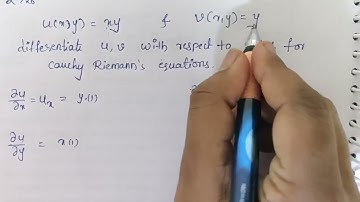 u(x,y) = xy & v(x,y) = y
differentiate u, v with respect to for
Cauchy Riemann's equations.
∂u/∂x = uₓ = y.(1)
∂u/∂y = x(1)